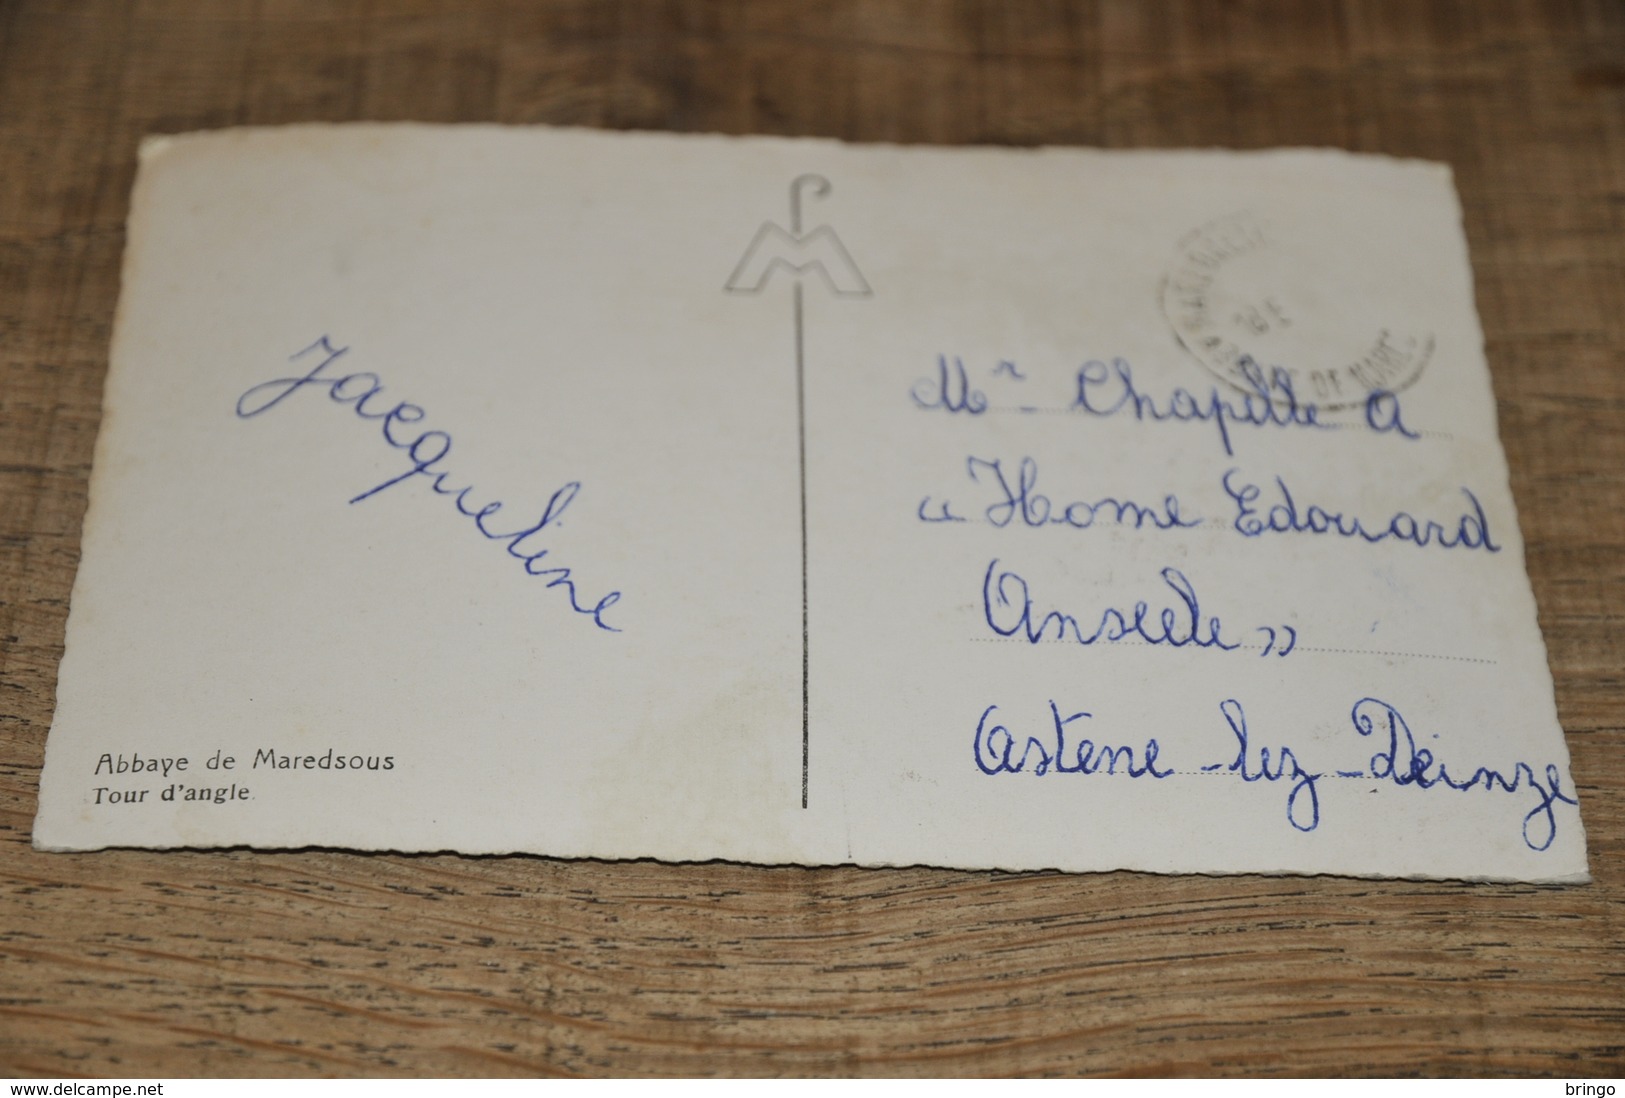 Jacqueline
Abbaye de Maredsous
Tour d'angle.
Mr. Chapelle A
"Home Edouard
Anseele"
Astene-lez-Deinze
DE MARE
delcampe.net
bringo